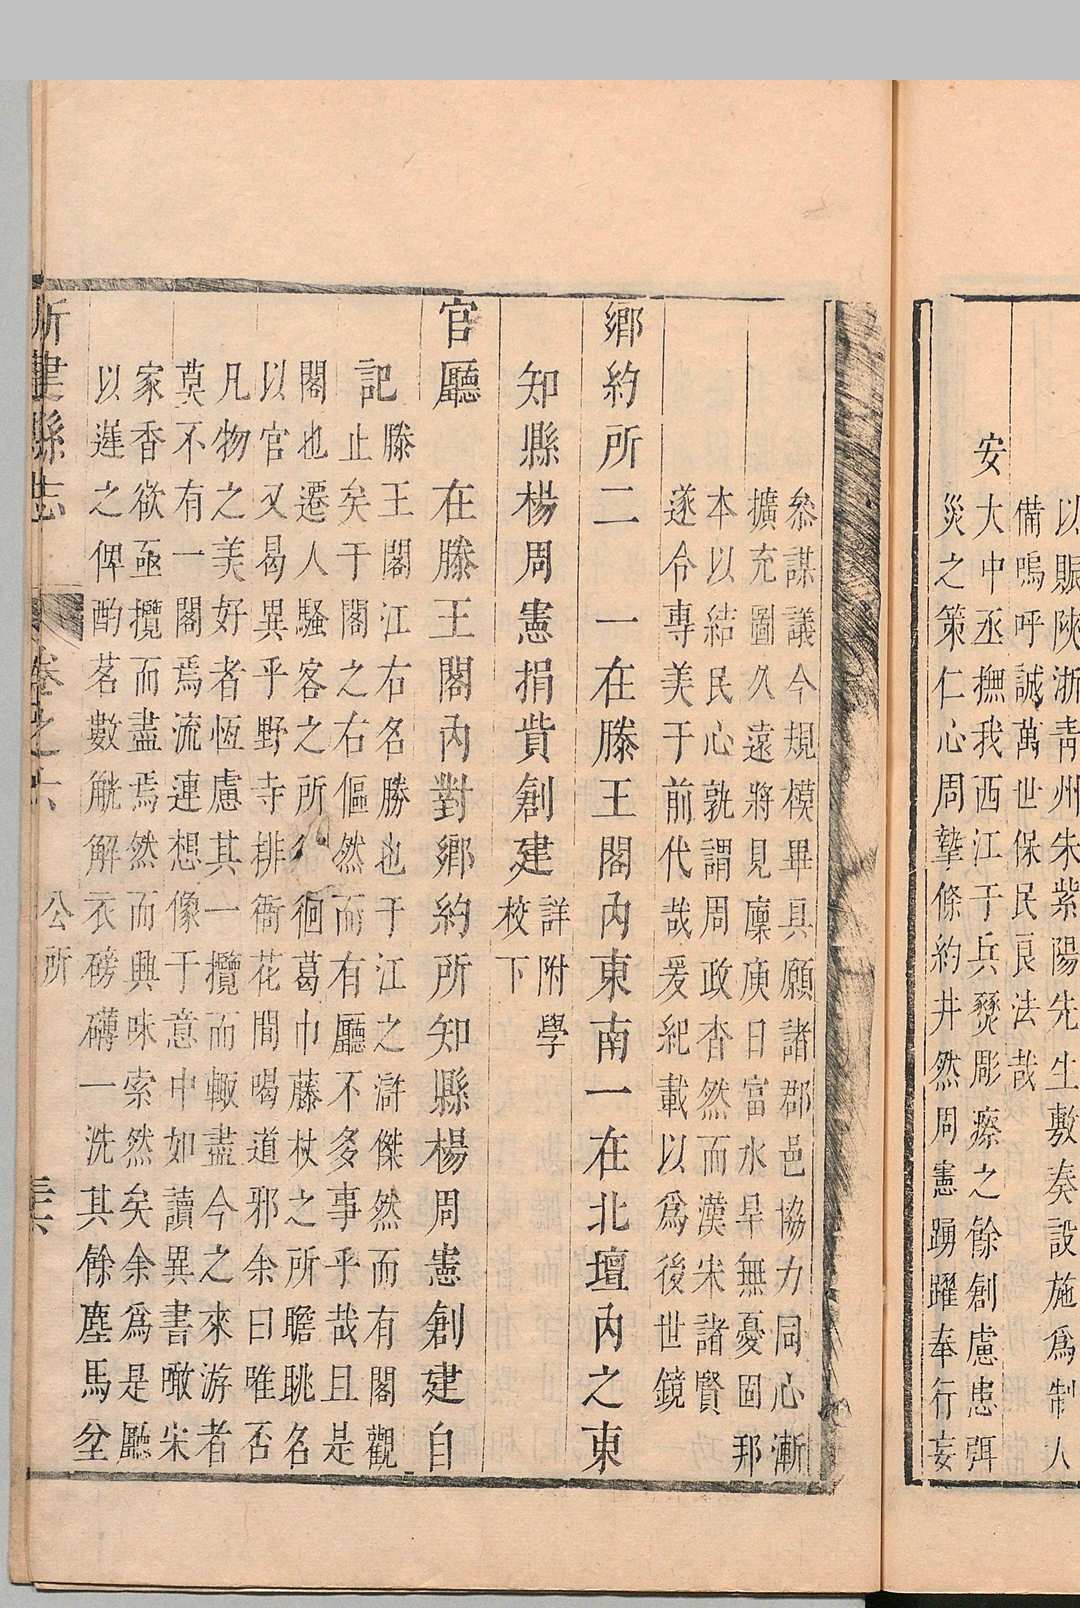 以賑陝浙靑州朱紫陽先生敷奏設施爲制人
備嗚呼誠萬世保民良法哉
安
大中丞撫我西江于兵燹彫瘵之餘創慮患弭
災之策仁心周摯條約井然周憲踴躍奉行妄
叅謀議今規模畢具願諸郡邑協力同心漸
擴充圖久遠將見廩庾日富水旱無憂固邦
本以結民心孰謂周政杳然而漢宋諸賢
遂令專美于前代哉爰紀載以爲後世鏡
鄉約所二 一在滕王閣內東南一在北壇內之東
知縣楊周憲捐貲創建詳附學校下
官廳 在滕王閣內對鄉約所知縣楊周憲創建自
記
滕王閣江右名勝也于江之滸傑然而有閣觀
止矣于閣之右傴然而有廳不多事乎哉且是
閣也遷人騷客之所徜徊葛巾藤杖之所瞻眺名
以官又曷異乎野寺排衙花間喝道邪余曰唯否
凡物之美好者恆慮其一攬而輙盡今之來游者
莫不有一閣焉流連想像于意中如讀異書噉宋
家香欲亟攬而盡焉然而興味索然矣余爲是廳
以遲之俾酌茗數觥解衣磅礴一洗其餘塵馬坌
新建縣志 卷之六 公所 三六